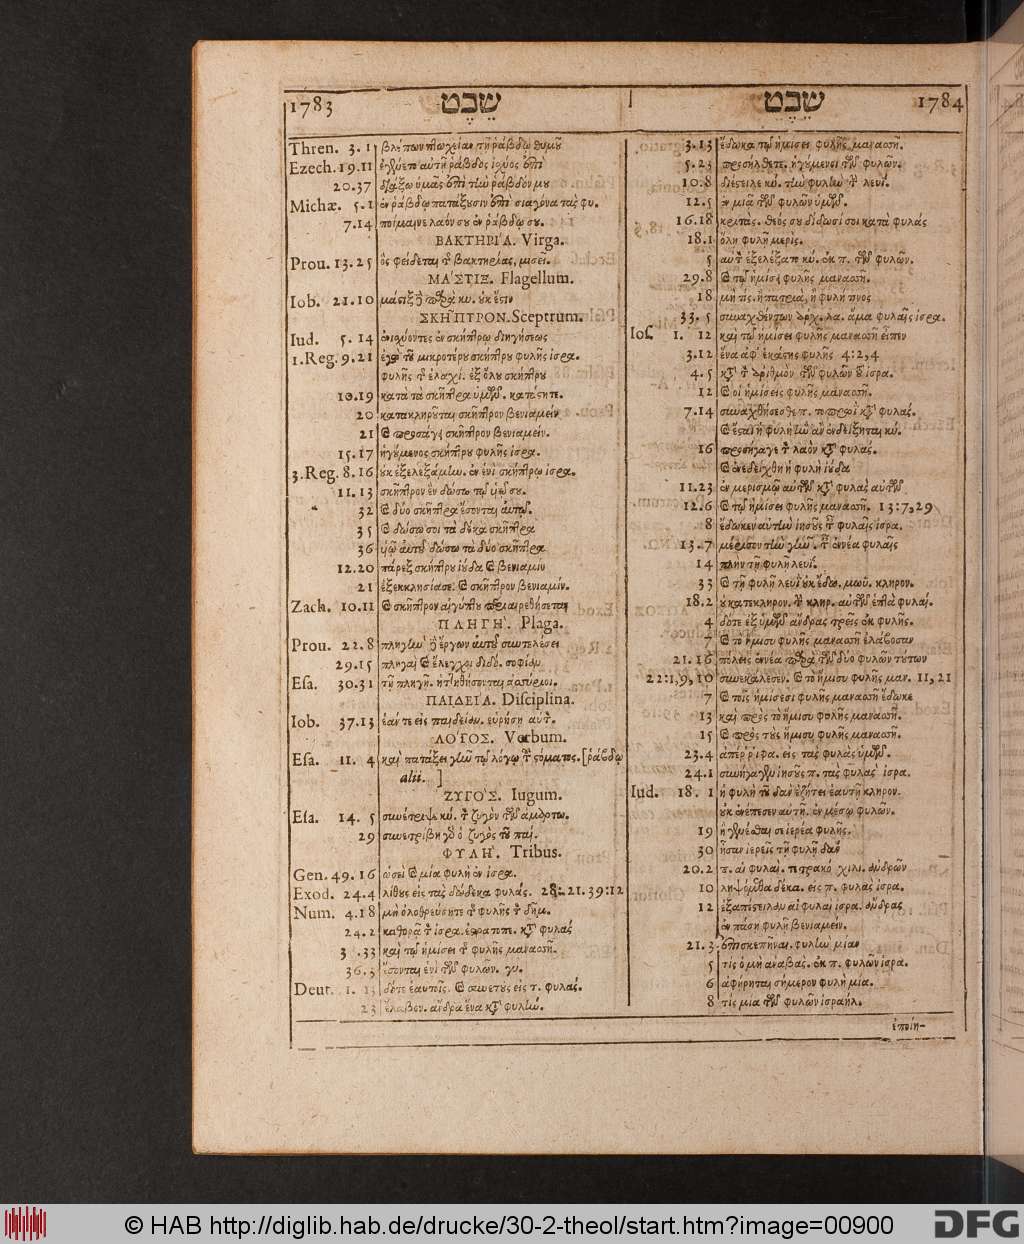 1783 שֵׁבֶט
Thren. 3. 1 βλέπων πτωχείαν τῇ ῥάβδῳ θυμοῦ
Ezech. 19. 11 ἐγένετο αὐτῇ ῥάβδος ἰσχύος ἐπὶ
20. 37 διάξω ὑμᾶς ὑπὸ τὴν ῥάβδόν μου
Michæ. 5. 1 ἐν ῥάβδῳ πατάξουσιν ἐπὶ σιαγόνα τὰς φυ.
7. 14 ποίμαινε λαόν σου ἐν ῥάβδῳ σου.
ΒΑΚΤΗΡΙ'Α. Virga.
Prou. 13. 25 ὃς φείδεται τ βακτηρίας, μισεῖ.
ΜΑ'ΣΤΙΞ. Flagellum.
Iob. 21. 10 μάστιξ παρὰ κυ. οὐκ ἔστιν
ΣΚΗ͂ΠΤΡΟΝ. Sceptrum.
Iud. 5. 14 ἐνισχύοντες ἐν σκήπτρῳ διηγήσεως
1. Reg. 9. 21 ἐγὼ τοῦ μικροτέρου σκήπτρου φυλῆς ἰσρα.
φυλῆς τ ἐλαχί. ἐξ ὅλου σκήπτρου
10. 19 κατὰ τὰ σκῆπτρα ὑμῶν. κατάστητε.
20 κατακληροῦται σκῆπτρον βενιαμείν
21 καὶ προσάγει σκῆπτρον βενιαμείν.
15. 17 ἡγούμενος σκήπτρου φυλῆς ἰσρα.
3. Reg. 8. 16 οὐκ ἐξελεξάμην. ἐν ἑνὶ σκήπτρῳ ἰσρα.
11. 13 σκῆπτρον ἓν δώσω τῷ υἱῷ σου.
32 καὶ δύο σκῆπτρα ἔσονται αὐτῷ.
35 καὶ δώσω σοι τὰ δέκα σκῆπτρα
36 υἱῷ αὐτοῦ δώσω τὰ δύο σκῆπτρα
12. 20 πάρεξ σκήπτρου ἰούδα καὶ βενιαμιν
21 ἐξεκκλησίασε. καὶ σκῆπτρον βενιαμίν.
Zach. 10. 11 καὶ σκῆπτρον αἰγύπτου περιαιρεθήσεται
ΠΛΗΓΗ'. Plaga.
Prou. 22. 8 πληγὴν ἔργων αὐτοῦ συντελέσει
29. 15 πληγαὶ καὶ ἔλεγχοι διδό. σοφίαν
Esa. 30. 31 τῇ πληγῇ. ἡττηθήσονται ἀσσύριοι.
ΠΑΙΔΕΙ'Α. Disciplina.
Iob. 37. 13 ἐάν τε εἰς παιδείαν. εὑρήσῃ αὐτ.
ΛΟ'ΓΟΣ. Verbum.
Esa. 11. 4 καὶ πατάξει γῆν τῷ λόγῳ τ στόματος. [ῥάβδῳ
alii. ]
ΖΥΓΟ'Σ. Iugum.
Esa. 14. 5 συνέτριψε κύ. τ ζυγὸν τῶν ἁμαρτω.
29 συνετρίβη γὰρ ὁ ζυγὸς τοῦ παί.
ΦΥΛΗ'. Tribus.
Gen. 49. 16 ὡσεὶ καὶ μία φυλὴ ἐν ἰσρα.
Exod. 24. 4 λίθους εἰς τὰς δώδεκα φυλάς. 28: 21. 39: 12
Num. 4. 18 μὴ ὀλοθρεύσητε τ φυλῆς τ δῆμ.
24. 2 καθορᾷ τ ἰσρα. ἐστρατοπε. κατὰ φυλάς
33 καὶ τῷ ἡμίσει τ φυλῆς μανασσῆ.
36. 3 ἔσονται ἑνὶ τῶν φυλῶν. γυ.
Deut. 1. 13 δότε ἑαυτοῖς. καὶ συνετοὺς εἰς τ. φυλάς.
23 ἔλαβον. ἄνδρα ἕνα κατὰ φυλήν.
שֵׁבֶט 1784
3. 13 ἔδωκα τῷ ἡμίσει φυλῆς μανασσῆ.
5. 23 προσήλθετε. ἡγούμενοι τῶν φυλῶν.
10. 8 διέστειλε κύ. τὴν φυλὴν τ λευί.
12. 5 ἐν μιᾷ τῶν φυλῶν ὑμῶν.
16. 18 κριτὰς. θεός σου δίδωσί σοι κατὰ φυλάς
18. 1 ὅλη φυλῇ μερίς.
5 αὐτ ἐξελέξατο κύ. ἐκ π. τῶν φυλῶν.
29. 8 καὶ τῷ ἡμίσει φυλῆς μανασσῆ.
18 μή τίς. ἢ πατριὰ, ἢ φυλή τινος
33. 5 συναχθέντων ἀρχ. λα. ἅμα φυλαῖς ἰσρα.
Ios. 1. 12 καὶ τῷ ἡμίσει φυλῆς μανασσῆ εἶπεν
3. 12 ἕνα ἀφ' ἑκάστης φυλῆς 4: 2, 4
4. 5 κατὰ τ ἀριθμὸν τῶν φυλῶν τοῦ ἰσρα.
12 καὶ οἱ ἡμίσεις φυλῆς μανασσῆ.
7. 14 συναχθήσεσθε π. τοπρωὶ κατὰ φυλάς.
καὶ ἔσται ἡ φυλὴ ἣν ἂν ἐνδείξηται κύ.
16 προσήγαγε τ λαὸν κατὰ φυλάς.
καὶ ἐνεδείχθη ἡ φυλὴ ἰούδα
11. 23 ἐν μερισμῷ αὐτῶν κατὰ φυλὰς αὐτῶν
12. 6 καὶ τῷ ἡμίσει φυλῆς μανασσῆ. 13: 7, 29
8 ἔδωκεν αὐτὴν ἰησοῦς τ φυλαῖς ἰσρα.
13. 7 μέρισον τὴν γῆν. τ ἐννέα φυλαῖς
14 πλὴν τῇ φυλῇ λευί.
33 καὶ τῇ φυλῇ λευὶ οὐκ ἔδω. μωϋ. κλῆρον.
18. 2 οὐ κατεκληρον. τ κληρ. αὐτῶν ἑπτὰ φυλαί.
4 δότε ἐξ ὑμῶν ἄνδρας τρεῖς ἐκ φυλῆς.
7 καὶ τὸ ἥμισυ φυλῆς μανασσῆ ἐλάβοσαν
21. 16 πόλεις ἐννέα παρὰ τῶν δύο φυλῶν τούτων
22: 1, 9, 10 συνεκάλεσεν. καὶ τὸ ἥμισυ φυλῆς μαν. 11, 21
7 καὶ τοῖς ἡμίσεσι φυλῆς μανασσῆ ἔδωκε
13 καὶ πρὸς τὸ ἥμισυ φυλῆς μανασσῆ.
15 καὶ πρὸς τοὺς ἥμισυ φυλῆς μανασσῆ.
23. 4 ἀπέρριφα. εἰς τὰς φυλὰς ὑμῶν.
24. 1 συνήγαγεν ἰησοῦς π. τὰς φυλὰς ἰσρα.
Iud. 18. 1 ἡ φυλὴ τοῦ δαν ἐζήτει ἑαυτῇ κληρον.
οὐκ ἐνέπεσεν αὐτῇ. ἐν μέσῳ φυλῶν.
19 ἢ γενέσθαι σε ἱερέα φυλῆς.
30 ἦσαν ἱερεῖς τῇ φυλῇ δαν
20. 2 π. αἱ φυλαὶ. τετρακό χιλι. ἀνδρῶν
10 ληψόμεθα δέκα. εἰς π. φυλὰς ἰσρα.
12 ἐξαπέστειλαν αἱ φυλαὶ ἰσρα. ἄνδρας
ἐν πάσῃ φυλῇ βενιαμείν.
21. 3 ἐπισκεπῆναι. φυλὴν μίαν
5 τίς ὁ μὴ ἀναβὰς. ἐκ π. φυλῶν ἰσρα.
6 ἀφῄρηται σήμερον φυλὴ μία.
8 τίς μία τῶν φυλῶν ἰσραήλ.
ἐποίη-
© HAB http://diglib.hab.de/drucke/30-2-theol/start.htm?image=00900
DFG